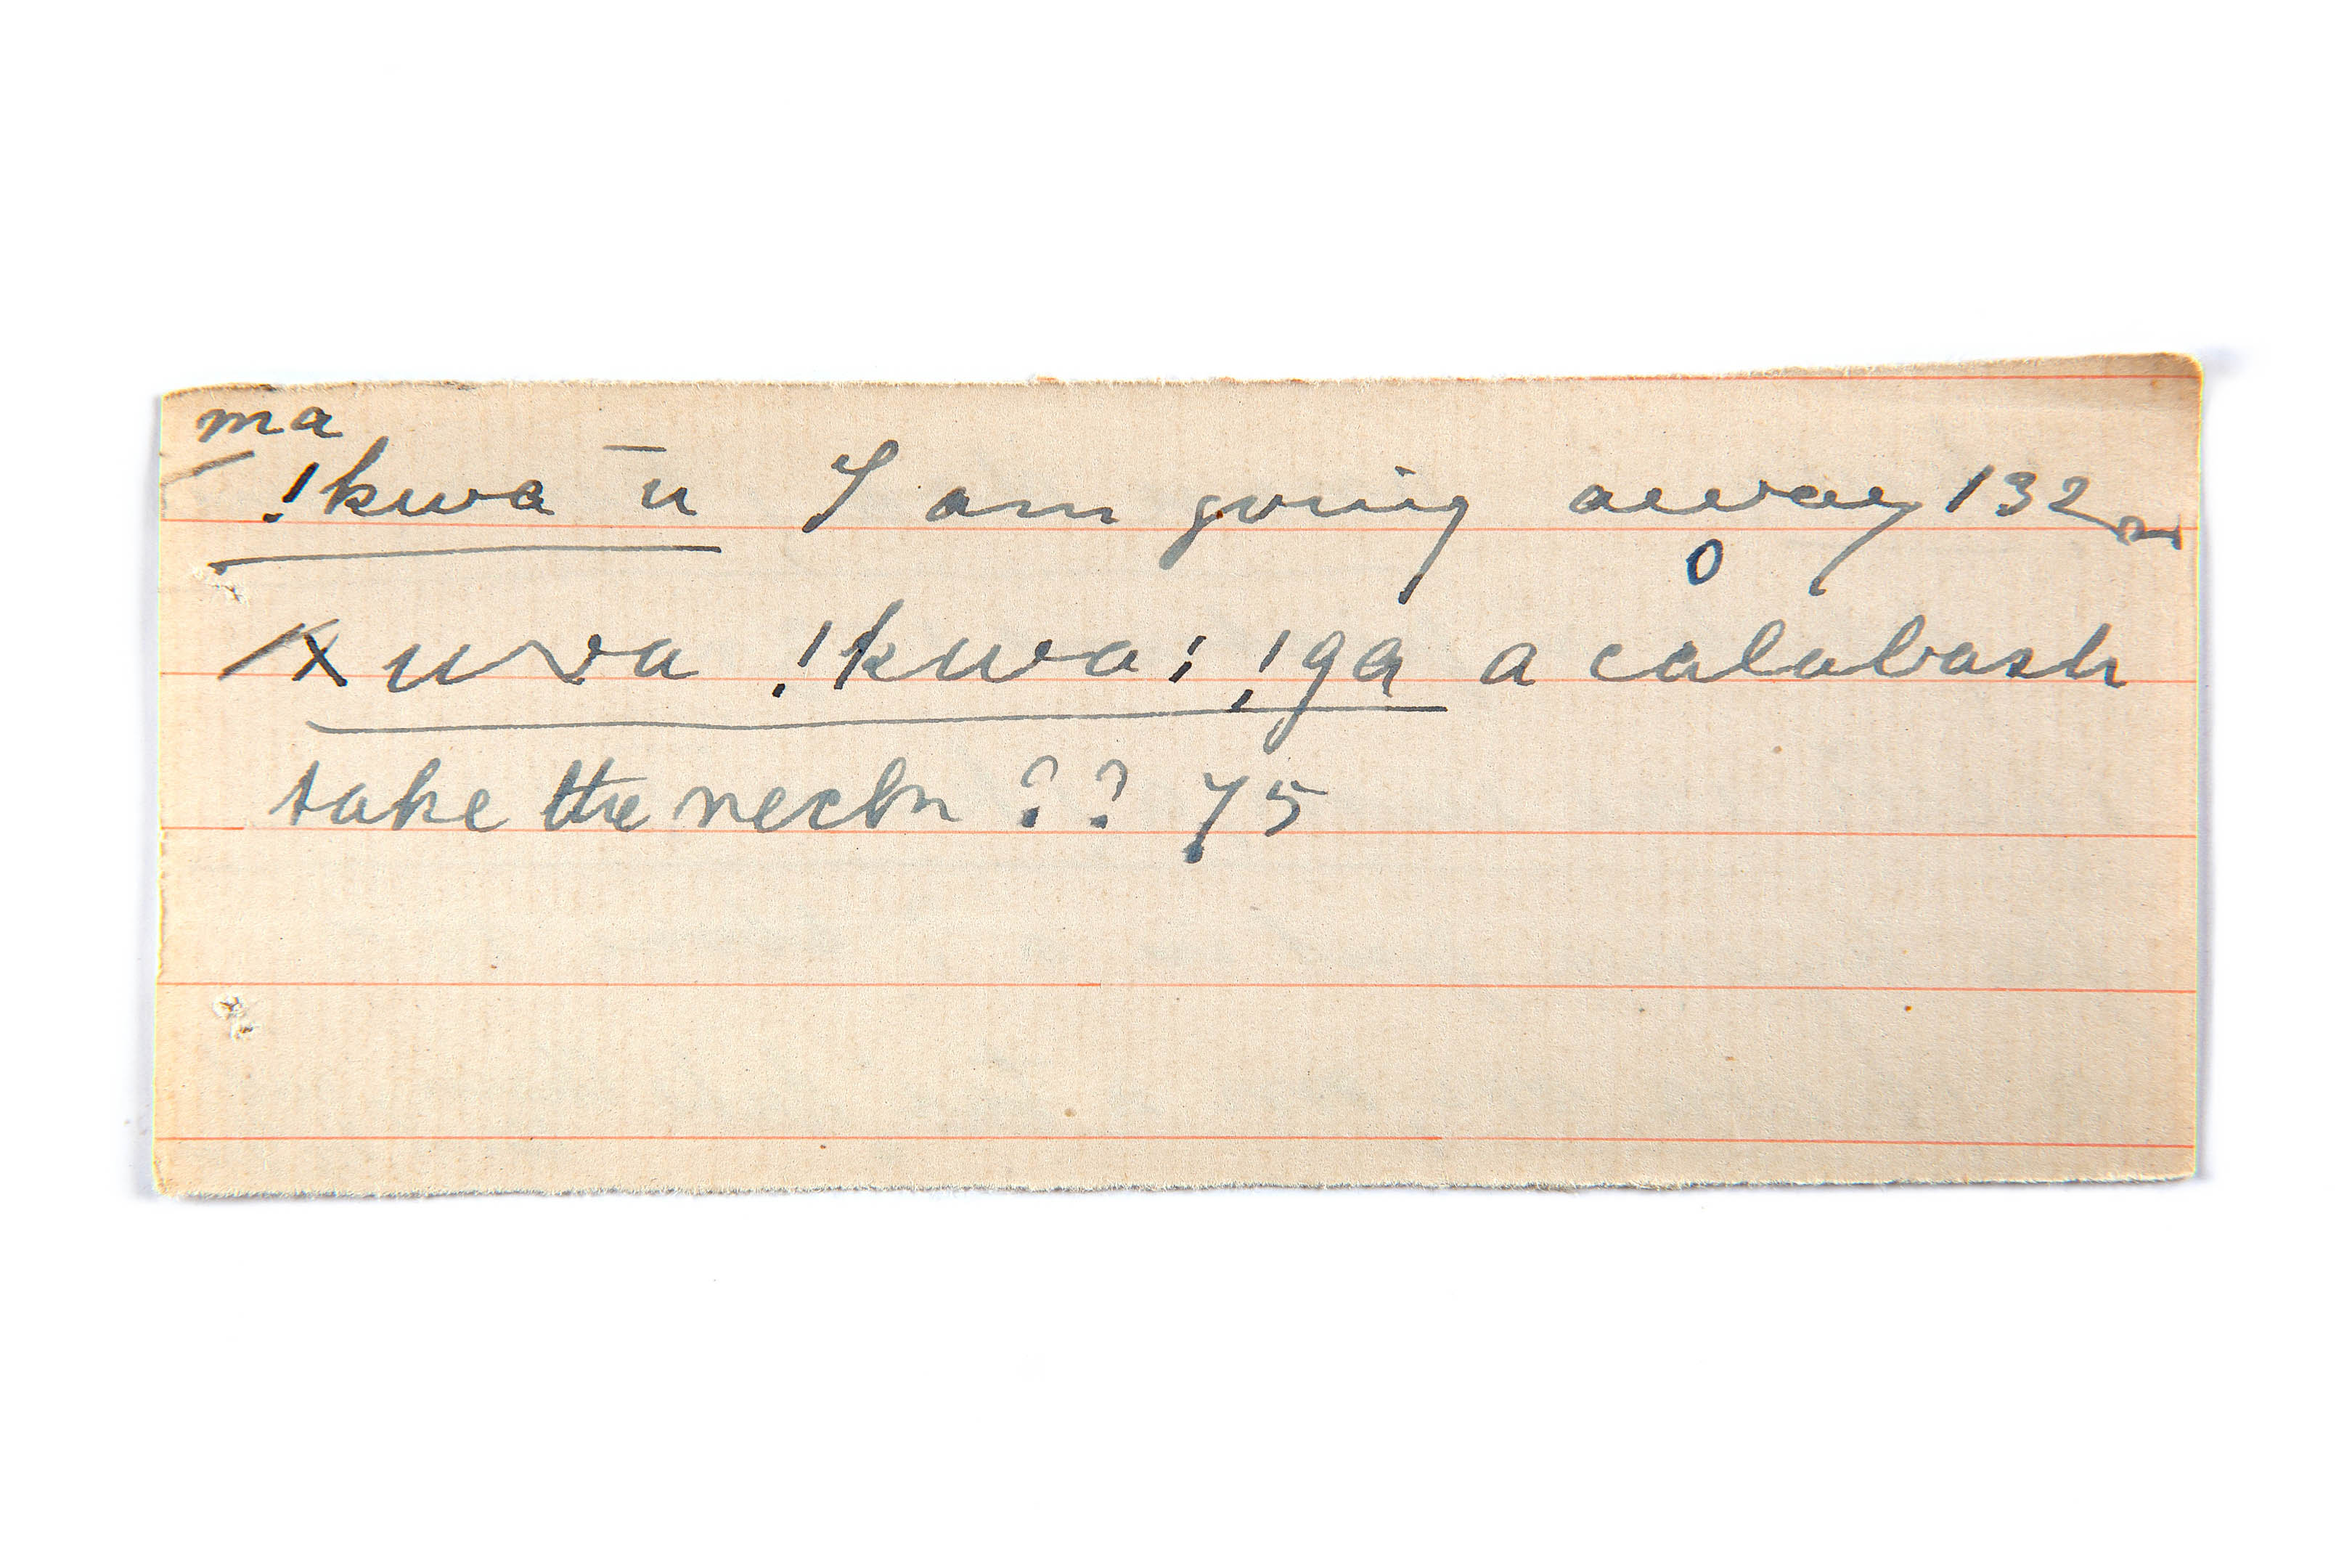 ma
!kwa ū I am going away 132
0
Xuwa !kwa: !ga a calabash
take the neck ?? 75